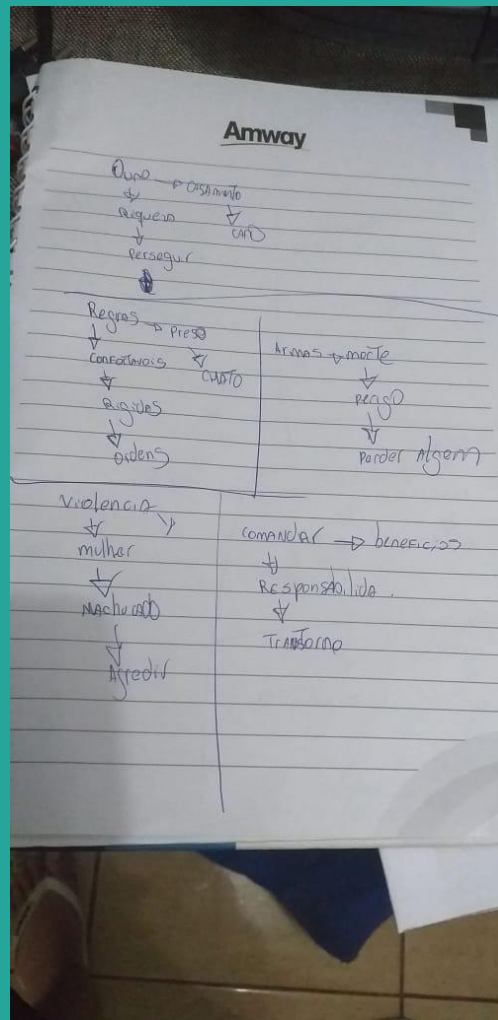 Amway
Ouro → CASAmento
Riqueza
CARO
Persegur
Regras → Preso
Confortavois
CHATO
Rigidas
Ordens
Armas → morte
Perigo
Perder Algem
Violencia
mulher
MAchucado
Agredir
COMANDAr → beneficios
Responsabilida
TrANstorno